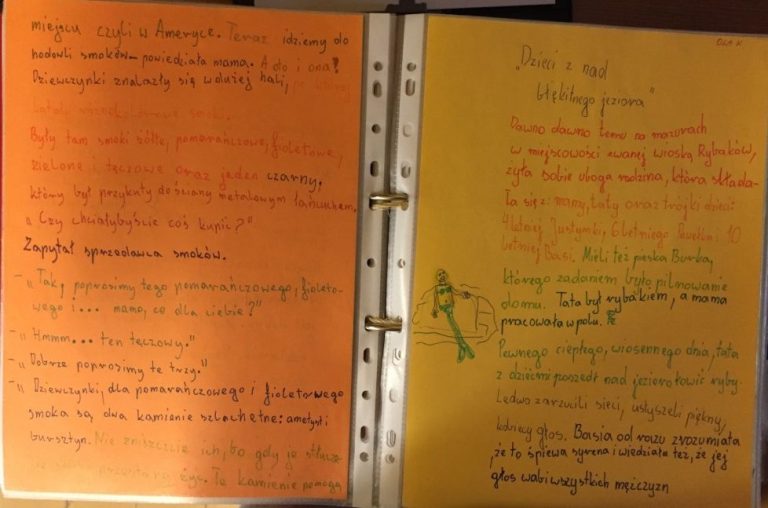 miejscu czyli w Ameryce. Teraz idziemy do
hodowli smoków – powiedziała mama. A oto i ona!
Dziewczynki znalazły się w dużej hali, po której
latały różnokolorowe smoki.
Były tam smoki żółte, pomarańczowe, fioletowe,
zielone i tęczowe oraz jeden czarny,
który był przykuty do ściany metalowym łańcuchem.
„Czy chciałybyście coś kupić?"
Zapytał sprzedawca smoków.
– „Tak, poprosimy tego pomarańczowego, fioleto-
wego i... mamo, co dla ciebie?"
– „Hmmm... ten tęczowy."
– „Dobrze poprosimy te trzy."
– „Dziewczynki, dla pomarańczowego i fioletowego
smoka są dwa kamienie szlachetne: ametyst i
bursztyn. Nie zniszczcie ich, bo gdy je stłucze
przestają żyć. Te kamienie pomogą
OLA K
„Dzieci z nad
błękitnego jeziora"
Dawno dawno temu na mazurach
w miejscowości zwanej wioską Rybaków,
żyła sobie uboga rodzina, która składa-
ła się z: mamy, taty oraz trójki dzieci:
4letniej Justynki, 6letniego Pawełka i 10
letniej Basi. Mieli też pieska Burka,
którego zadaniem było pilnowanie
domu. Tata był rybakiem, a mama
pracowała w polu.
Pewnego ciepłego, wiosennego dnia, tata
z dziećmi poszedł nad jezioro łowić ryby.
Ledwo zarzucili sieci, usłyszeli piękny,
kobiecy głos. Basia od razu zrozumiała
,że to śpiewa syrena i wiedziała też, że jej
głos wabi wszystkich mężczyzn